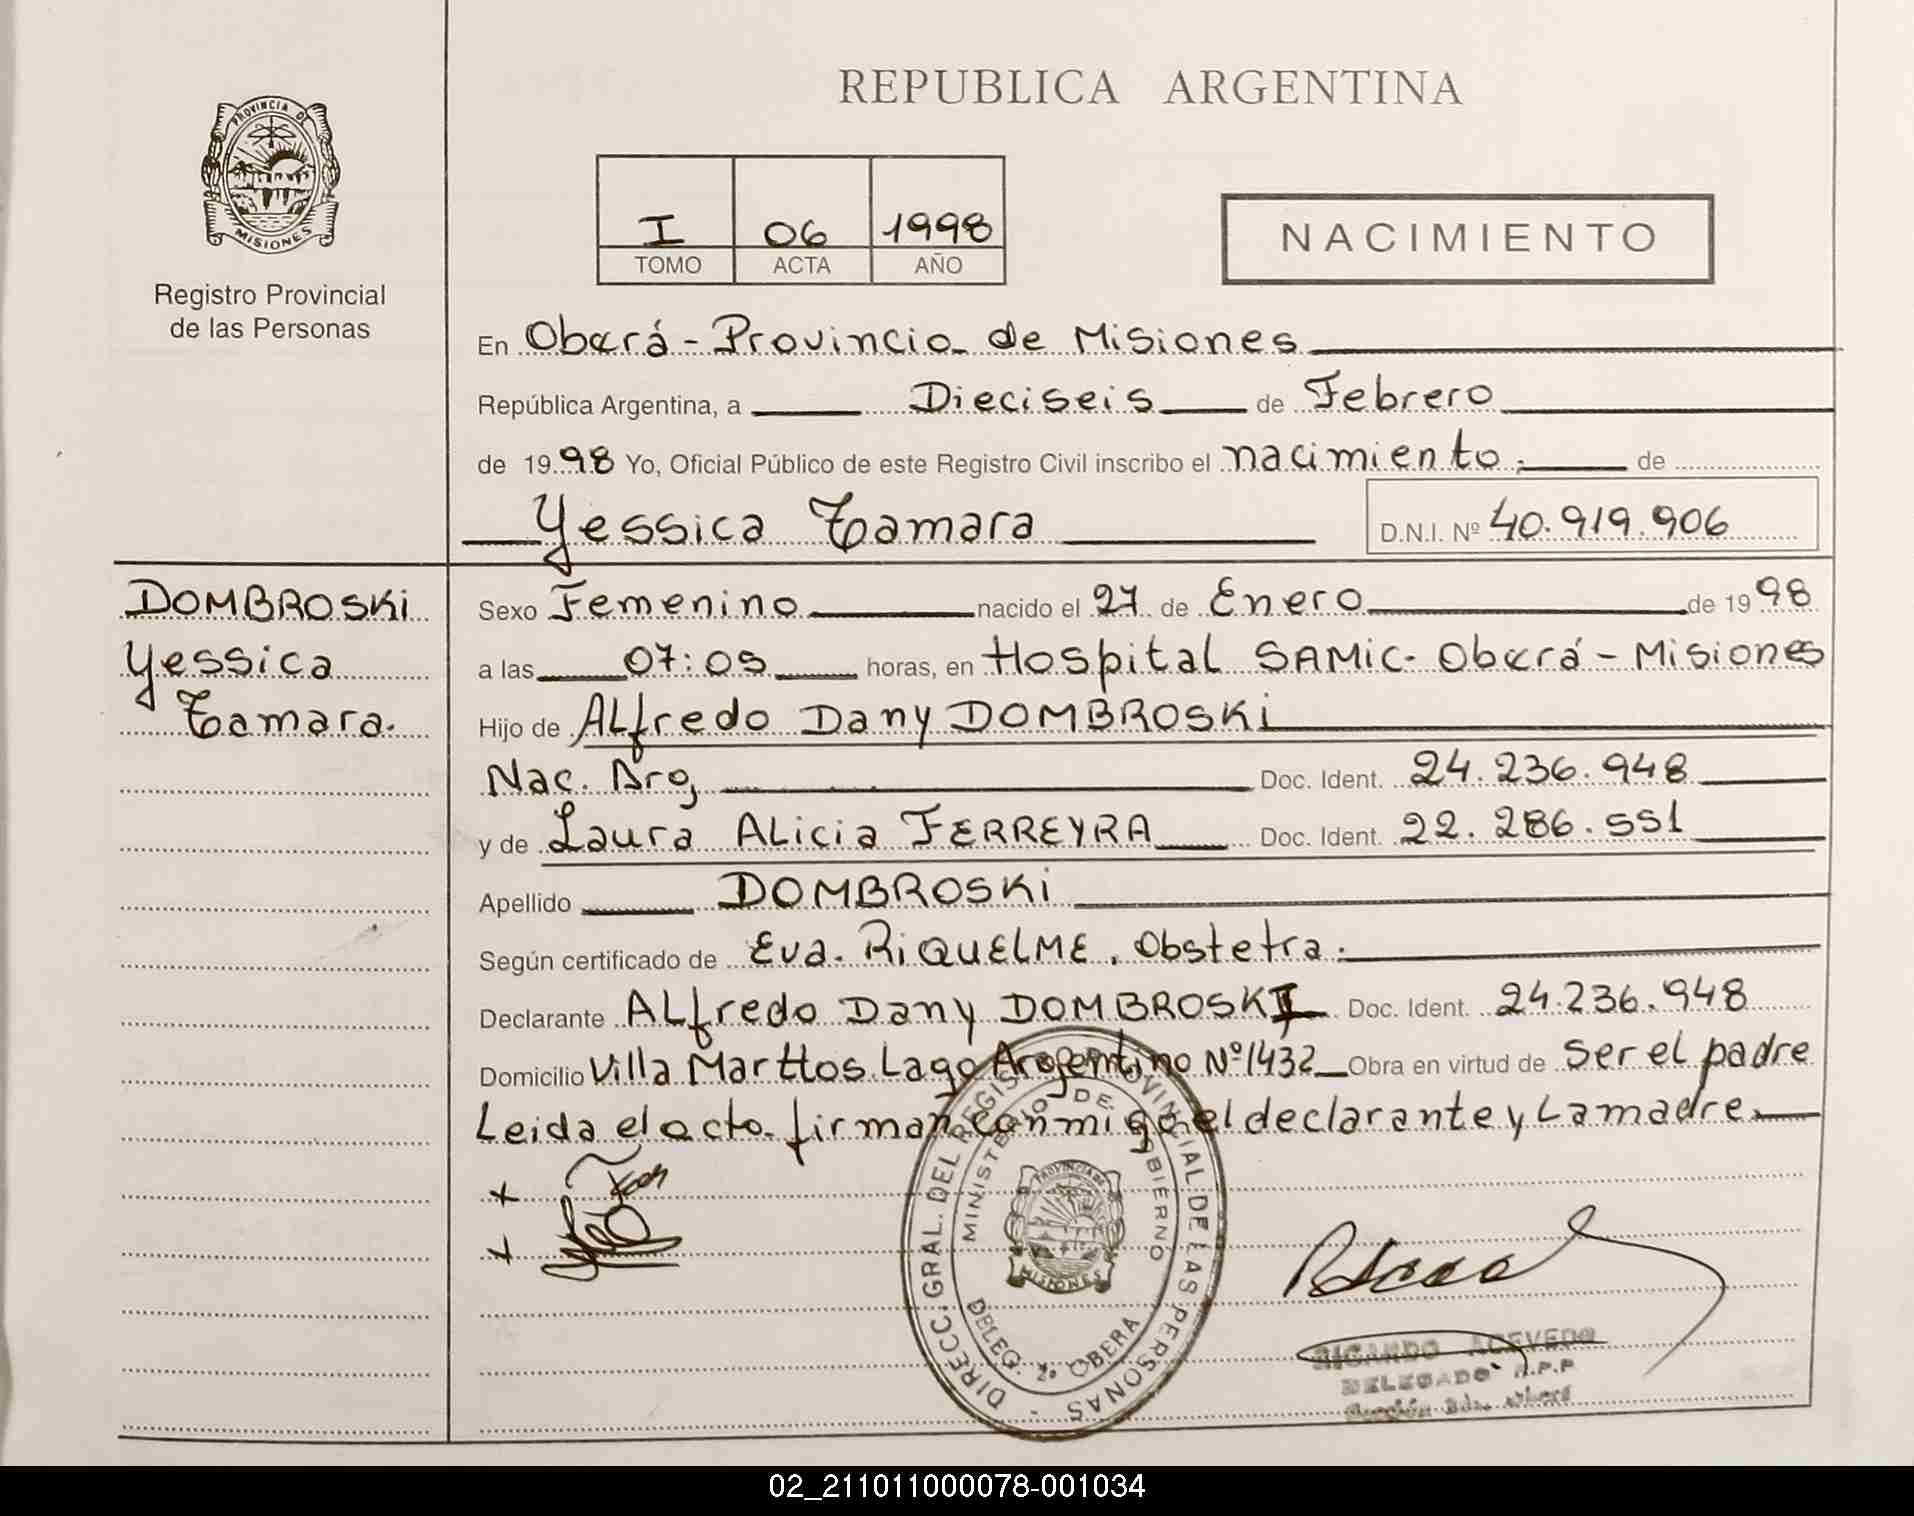 REPUBLICA ARGENTINA
PROVINCIA DE
MISIONES
Registro Provincial
de las Personas
I 06 1998
TOMO ACTA AÑO
NACIMIENTO
En Oberá - Provincia de Misiones
República Argentina, a Dieciseis de Febrero
de 1998 Yo, Oficial Público de este Registro Civil inscribo el nacimiento. de
Yessica Tamara D.N.I. Nº 40.919.906
DOMBROSKi
Yessica
Tamara.
Sexo Femenino nacido el 27 de Enero de 1998
a las 07:05 horas, en Hospital SAMiC. Oberá - Misiones
Hijo de ALfredo Dany DOMBROSKi
Nac. Arg Doc. Ident. 24.236.948
y de Laura ALicia FERREYRA Doc. Ident. 22.286.551
Apellido DOMBROSKi
Según certificado de Eva. RiQUELME. Obstetra.
Declarante ALfredo Dany DOMBROSKI Doc. Ident. 24.236.948
Domicilio Villa Marttos Lago Argentino Nº 1432 Obra en virtud de Ser el padre
Leida el acta firman conmigo el declarante y La madre.
DIRECC. GRAL. DEL REGISTRO PROVINCIAL DE LAS PERSONAS -
MINISTERIO DE GOBIERNO
PROVINCIA DE
MISIONES
DELEG. 2º OBERA
RICARDO ACEVEDO
DELEGADO R.P.P
02_211011000078-001034